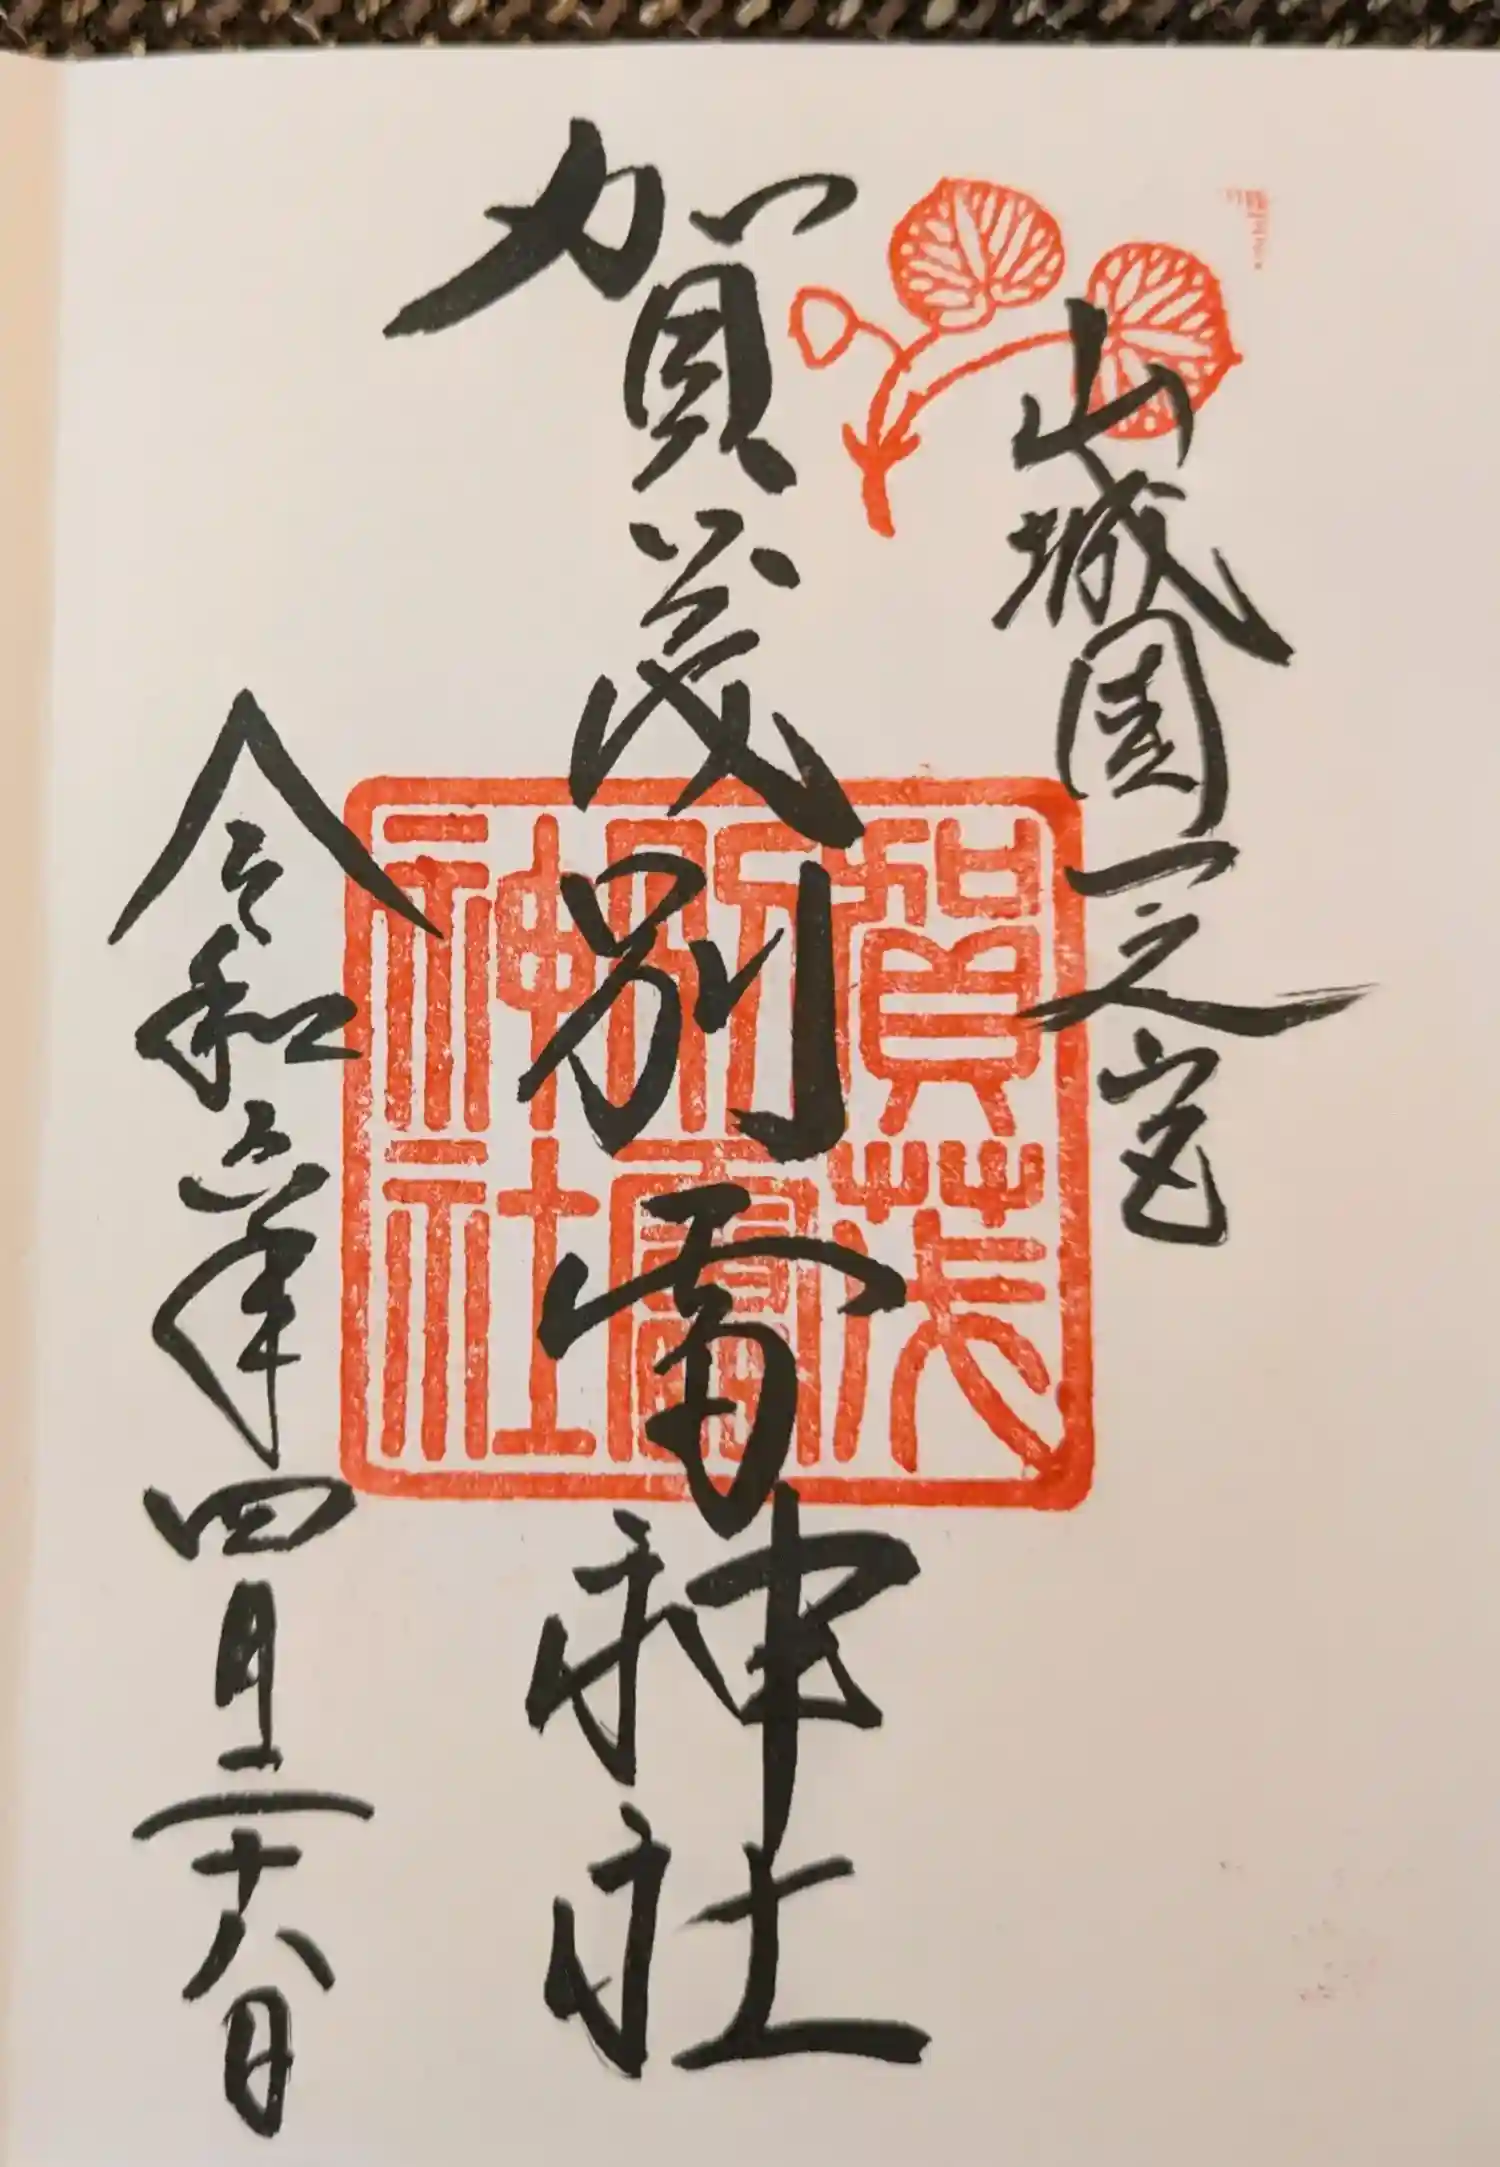 山城国一之宮
賀茂別雷神社
令和六年四月二十八日
賀茂
別雷
神社